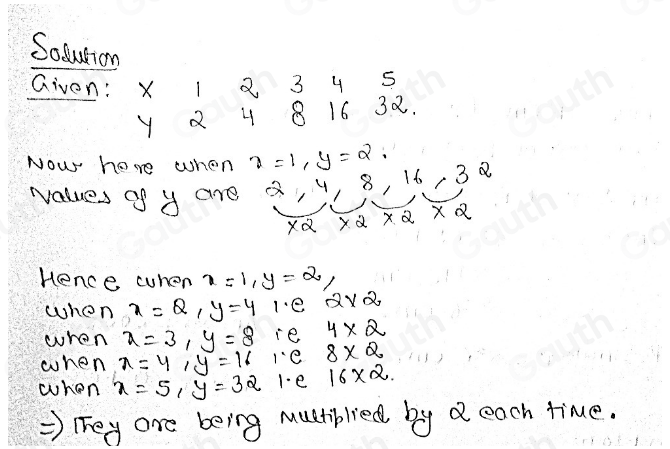 Solution
Given: X 1 2 3 4 5
Y 2 4 8 16 32.
Now here when x=1, y=2.
Values of y are 2, 4, 8, 16, 32
x2 x2 x2 x2
Hence when x=1, y=2,
when x=2, y=4 i.e 2x2
when x=3, y=8 ie 4x2
when x=4, y=16 i'e 8x2
when x=5, y=32 i.e 16x2.
=> They are being multiplied by 2 each time.